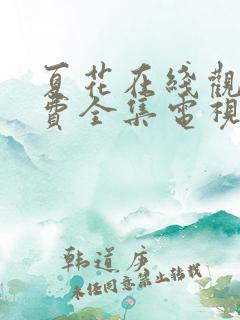 夏花在线觀
費全集電視
韩道序
未经同意禁止转载